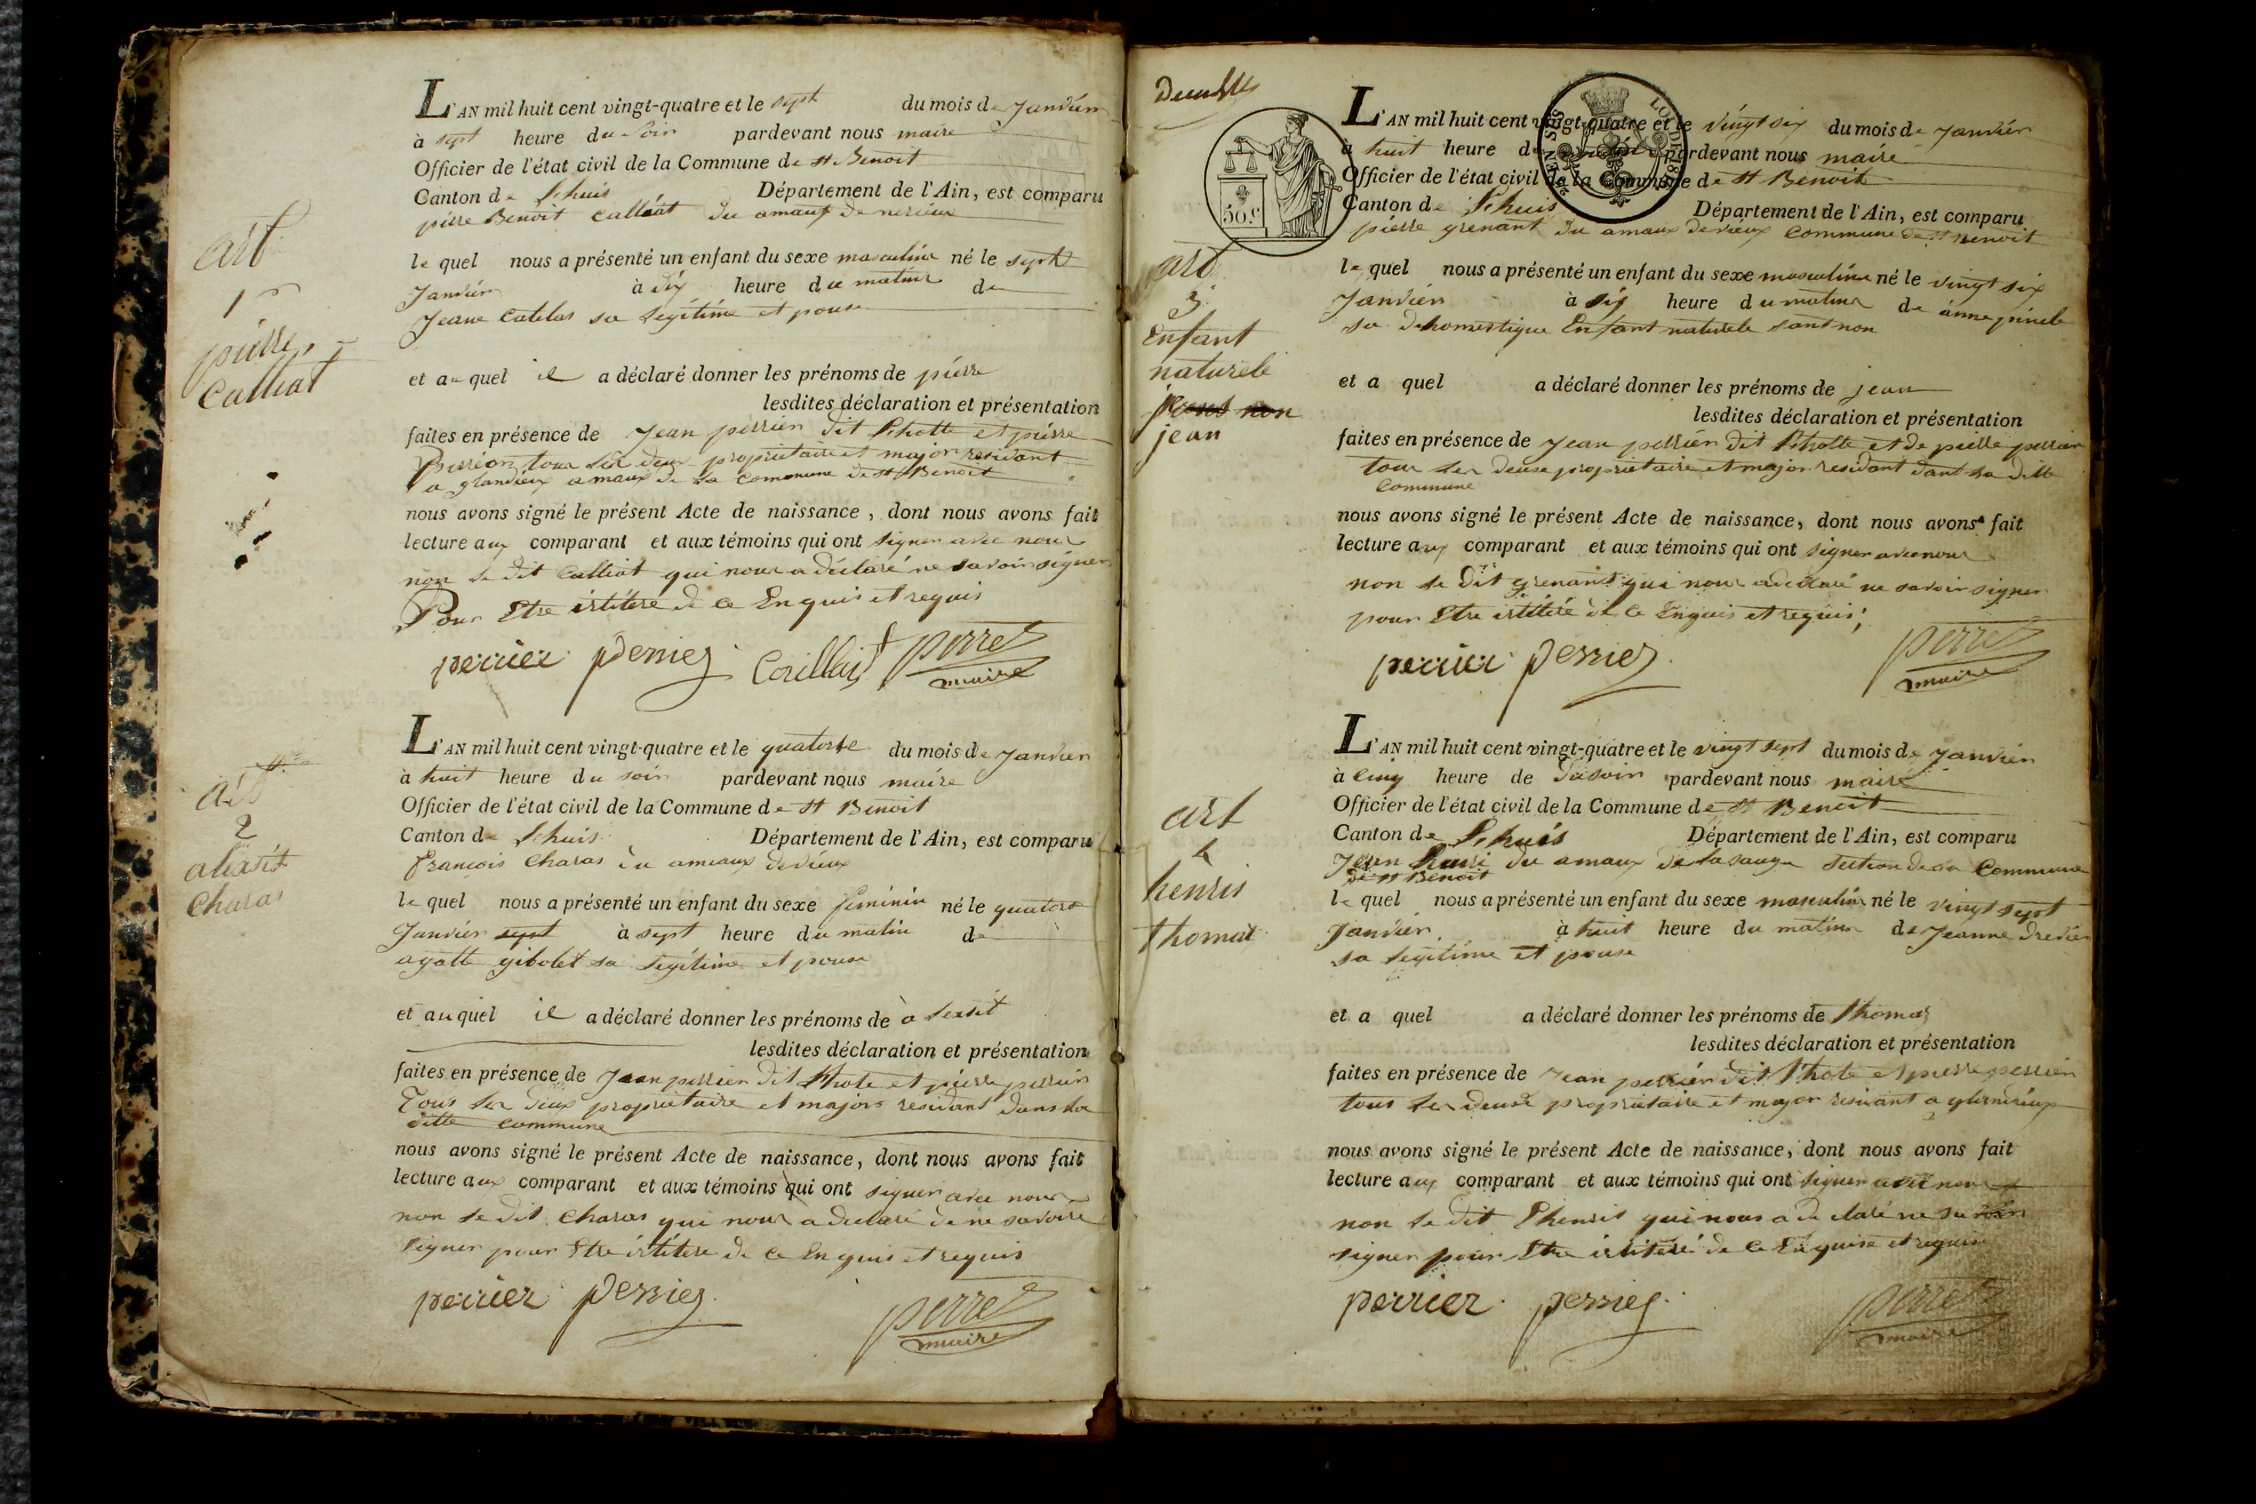 art
1r
pierre
Calliat
L'AN mil huit cent vingt-quatre et le sept du mois de Janvier
à sept heure du soir pardevant nous maire
Officier de l'état civil de la Commune de st Benoit
Canton de Lhuis Département de l'Ain, est comparu
pierre Benoit Calliat du amaux de
le quel nous a présenté un enfant du sexe masculine né le sept
Janvier à dix heure du matine de
Jeane sa légitime et pouse
et au quel il a déclaré donner les prénoms de pierre
lesdites déclaration et présentation
faites en présence de Jean perrier dit Lhotte et pierre
Perrier tour les deux proprietaire et major residant
a glandieux amaux de la Commune de st Benoit
nous avons signé le présent Acte de naissance, dont nous avons fait
lecture aux comparant et aux témoins qui ont signer avec nour
non le dit Calliat qui nour a déclaré ne savoir signer
Pour Etre irtiteré de ce Enquis et requis
perrier perrier Caillat perret
maire
art
2
Charas
L'AN mil huit cent vingt-quatre et le quatorse du mois de Janvier
à huit heure du soir pardevant nous maire
Officier de l'état civil de la Commune de st Benoit
Canton de Lhuis Département de l'Ain, est comparu
francois Charas du ameaux
le quel nous a présenté un enfant du sexe feminin né le quators
Janvier sept à sept heure du matin de
agatte gibolet sa légitime et pouse
et au quel il a déclaré donner les prénoms de
lesdites déclaration et présentation
faites en présence de Jean perrier dit Lhote et pierre perrier
Tous les deux proprietaire et major residant dans la
ditte Commune
nous avons signé le présent Acte de naissance, dont nous avons fait
lecture aux comparant et aux témoins qui ont signer avec nour
non le dit Charas qui nour a déclaré de ne savoire
signer pour Etre irtiteré de ce Enquis et requis
perrier perrier perret
maire
50 c
LOI DE
art
3
Enfant
naturele
non
jean
L'AN mil huit cent vingt-quatre et le vingt six du mois de Janvier
à huit heure d pardevant nous maire
Officier de l'état civil de la Commune de st Benoit
Canton de Lhuis Département de l'Ain, est comparu
pierre grenant du amaux Commune de st Benoit
le quel nous a présenté un enfant du sexe masculine né le vingt six
Janvier à six heure du matine de anne
sa dehomestique Enfant naturele sant non
et a quel a déclaré donner les prénoms de jean
lesdites déclaration et présentation
faites en présence de Jean perrier dit Lhotte et de pierre perrier
tour les deuse proprietaire et major residant dant la ditte
Commune
nous avons signé le présent Acte de naissance, dont nous avons fait
lecture aux comparant et aux témoins qui ont signer avec nour
non le dit grenant qui nour a déclaré ne savoir signer
pour Etre irtiteré de ce Enquis et requis;
perrier perrier perret
maire
art
4
henris
thomas
L'AN mil huit cent vingt-quatre et le vingt sept du mois de Janvier
à cinq heure de du soir pardevant nous maire
Officier de l'état civil de la Commune de st Benoit
Canton de Lhuis Département de l'Ain, est comparu
Jean henri du amaux de la sauge section de la Commune
de st Benoit
le quel nous a présenté un enfant du sexe masculin né le vingt sept
Janvier à huit heure du matine de Jeanne
sa légitime et pouse
et a quel a déclaré donner les prénoms de thomas
lesdites déclaration et présentation
faites en présence de Jean perrier dit Lhote et pierre perrier
tous les deuse proprietaire et major residant a
nous avons signé le présent Acte de naissance, dont nous avons fait
lecture aux comparant et aux témoins qui ont signer avec nour
non le dit Lhenris qui nous a déclaré ne savoir
signer pour Etre irtiteré de ce Enquise et requis
perrier perrier perret
maire